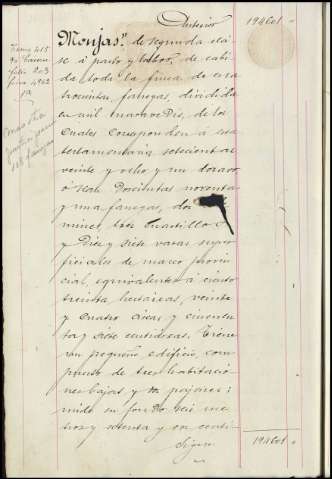 Anterior 194601
Monjas, de segunda cla-
se á pasto y labor, de cabi-
da toda la finca de cua-
trocientas fanegas, dividida
en mil maravedis, de los
cuales corresponden á esta
testamentaria setecientos
veinte y ocho y un dozavo
ó sean Doscientas noventa
y una fanegas, dos
mines, tres cuartillos
y Diez y siete varas super-
ficiales de marco provin-
cial, equivalentes á ciento
treinta hectareas, veinte
y cuatro áreas y cincuen-
ta y siete centiáreas. Tiene
un pequeño edificio, com-
puesto de tres habitacio-
nes bajas y un pajar;
mide su fondo seis me-
tros y setenta y un centi-
Sigue 194601
Tomo 415
folio 203
finca 4962